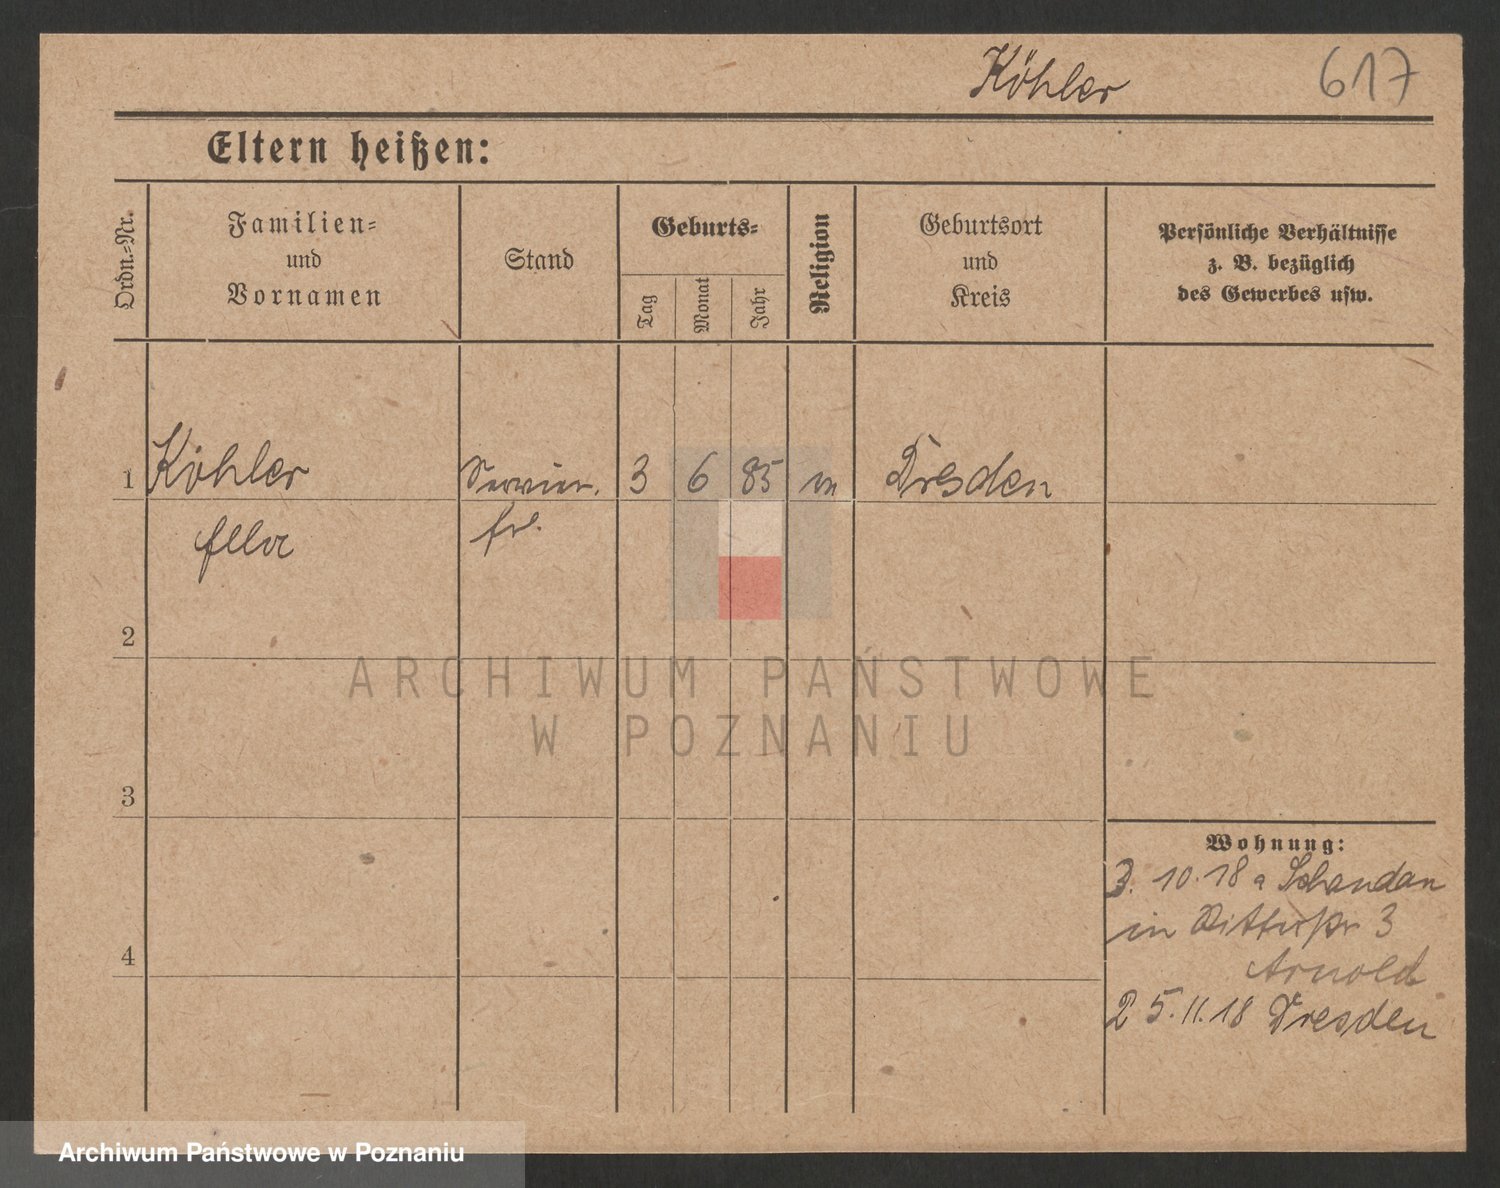 Köhler 617
Eltern heißen:
Ordn.-Nr.
Familien-
und
Vornamen
Stand
Geburts-
Tag
Monat
Jahr
Religion
Geburtsort
und
Kreis
Persönliche Verhältnisse
z. B. bezüglich
des Gewerbes usw.
1 Köhler Servier. 3 6 85 Dresden
Ella frl.
2
3
4
Wohnung:
3. 10. 18 a Schandau
in Ritterstr 3
Arnold
5. 11. 18 Dresden
ARCHIWUM PAŃSTWOWE
W POZNANIU
Archiwum Państwowe w Poznaniu